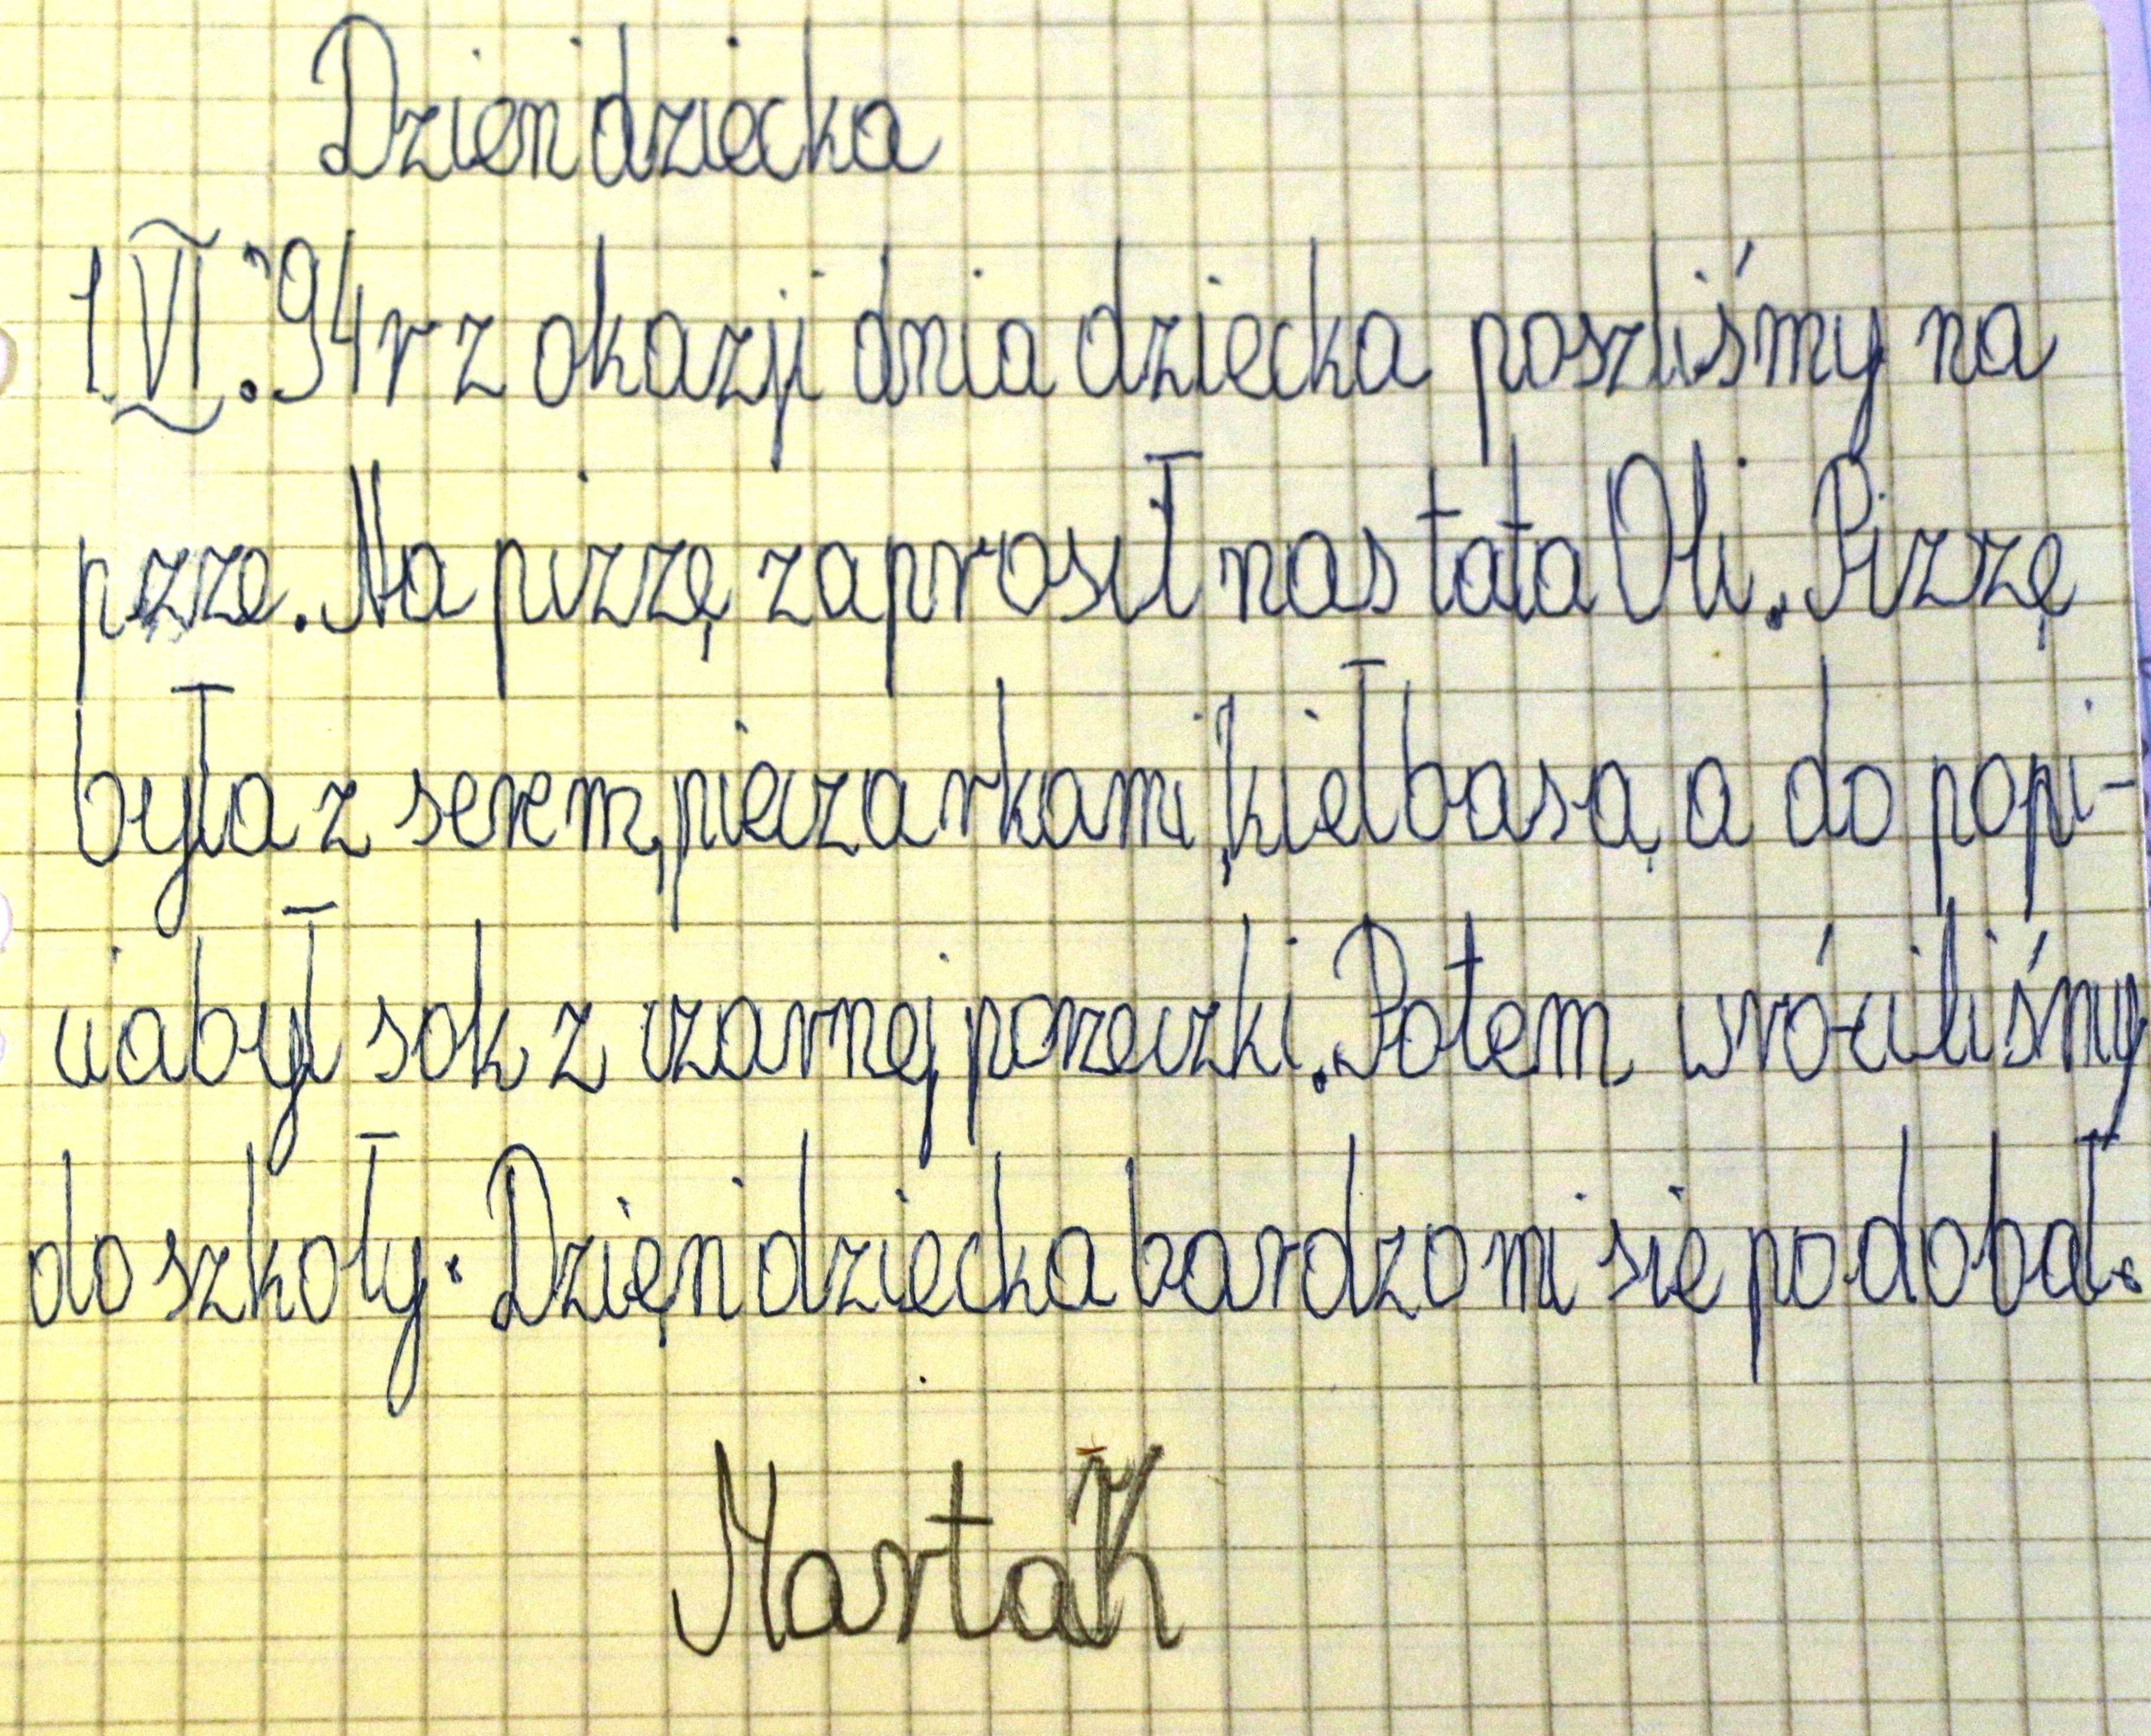 Dzien dziecka
1 VI.'94 r z okazji dnia dziecka poszliśmy na
pizze. Na pizzę zaprosił nas tata Oli. Pizzę
była z serem, pieczarkami, kiełbasą a do popi-
ciabył sok z czarnej porzeczki. Potem wróciliśmy
do szkoły. Dzięn dziecka bardzo mi sie podobał.
Marta K